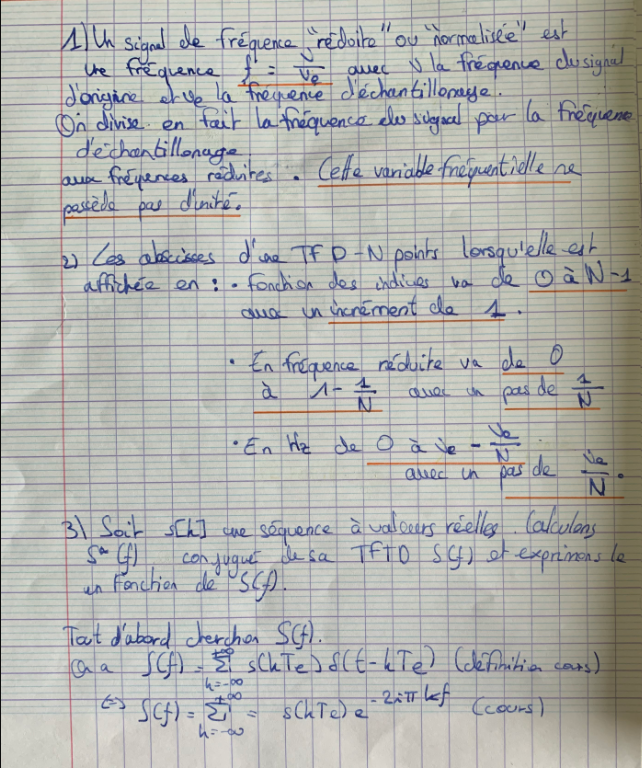 1) Un signal de fréquence "réduite" ou "normalisée" est
une fréquence f = ν/νe avec ν la fréquence du signal
d'origine et νe la fréquence d'échantillonage.
On divise en fait la fréquence du signal par la fréquence
d'échantillonage
aux fréquences réduites. Cette variable fréquentielle ne
possède pas d'unité.
2) Les abscisses d'une TFD-N points lorsqu'elle est
affichée en : • fonction des indices va de 0 à N-1
avec un incrément de 1.
• En fréquence réduite va de 0
à 1 - 1/N avec un pas de 1/N
• En Hz de 0 à νe - νe/N
avec un pas de νe/N.
3) Soit s[k] une séquence à valeurs réelles. Calculons
S*(f) conjugué de sa TFTD S(f) et exprimons le
en fonction de S(f).
Tout d'abord cherchon S(f).
On a S(f) = Σ_{k=-∞}^{+∞} s(kTe) δ(t-kTe) (définition cours)
⇔ S(f) = Σ_{k=-∞}^{+∞} = s(kTe) e^{-2iπkf} (cours)